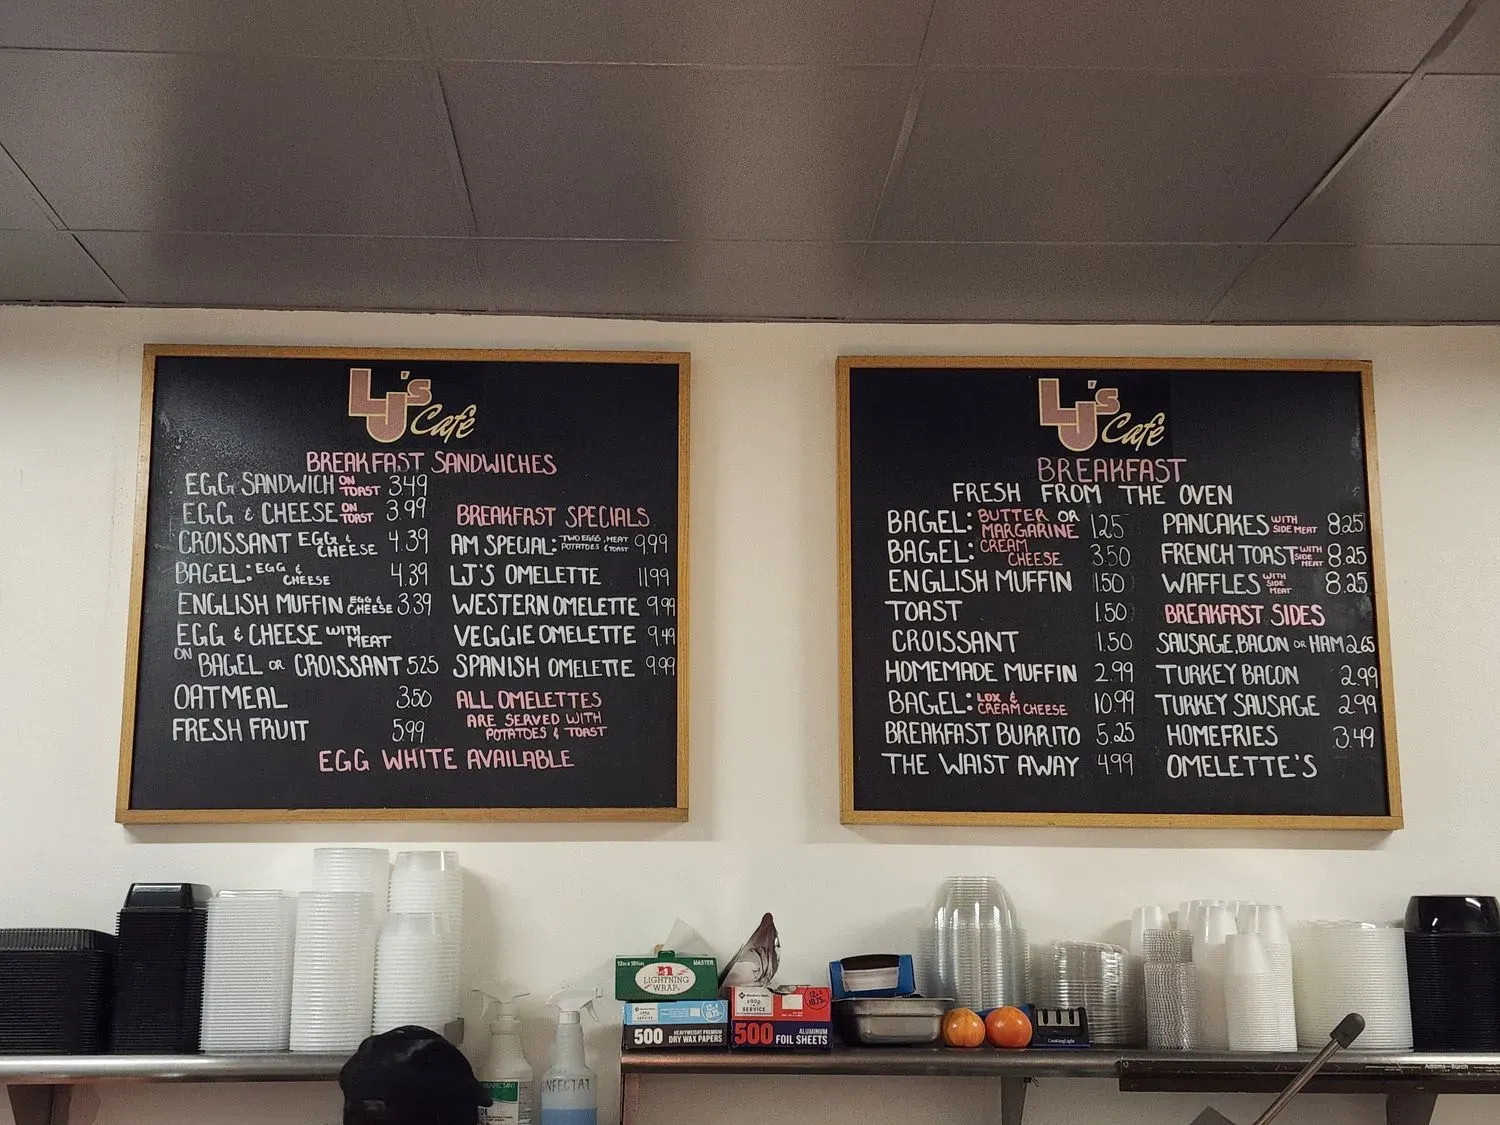 LJ's Café
BREAKFAST SANDWICHES
EGG SANDWICH ON TOAST 3.49
EGG & CHEESE ON TOAST 3.99
CROISSANT EGG & CHEESE 4.39
BAGEL: EGG & CHEESE 4.39
ENGLISH MUFFIN EGG & CHEESE 3.39
EGG & CHEESE WITH MEAT
ON BAGEL OR CROISSANT 5.25
OATMEAL 3.50
FRESH FRUIT 5.99
BREAKFAST SPECIALS
AM SPECIAL: TWO EGGS, MEAT POTATOES & TOAST 9.99
LJ'S OMELETTE 11.99
WESTERN OMELETTE 9.99
VEGGIE OMELETTE 9.49
SPANISH OMELETTE 9.99
ALL OMELETTES
ARE SERVED WITH
POTATOES & TOAST
EGG WHITE AVAILABLE
LJ's Café
BREAKFAST
FRESH FROM THE OVEN
BAGEL: BUTTER OR MARGARINE 1.25
BAGEL: CREAM CHEESE 3.50
ENGLISH MUFFIN 1.50
TOAST 1.50
CROISSANT 1.50
HOMEMADE MUFFIN 2.99
BAGEL: LOX & CREAM CHEESE 10.99
BREAKFAST BURRITO 5.25
THE WAIST AWAY 4.99
PANCAKES WITH SIDE MEAT 8.25
FRENCH TOAST WITH SIDE MEAT 8.25
WAFFLES WITH SIDE MEAT 8.25
BREAKFAST SIDES
SAUSAGE, BACON OR HAM 2.65
TURKEY BACON 2.99
TURKEY SAUSAGE 2.99
HOMEFRIES 3.49
OMELETTE'S
MASTER
LIGHTNING
WRAP
500 HEAVYWEIGHT PREMIUM
DRY WAX PAPERS
FOOD
SERVICE
12 x 10.75
500 ALUMINUM
FOIL SHEETS
CookingLight
Adams-Burch